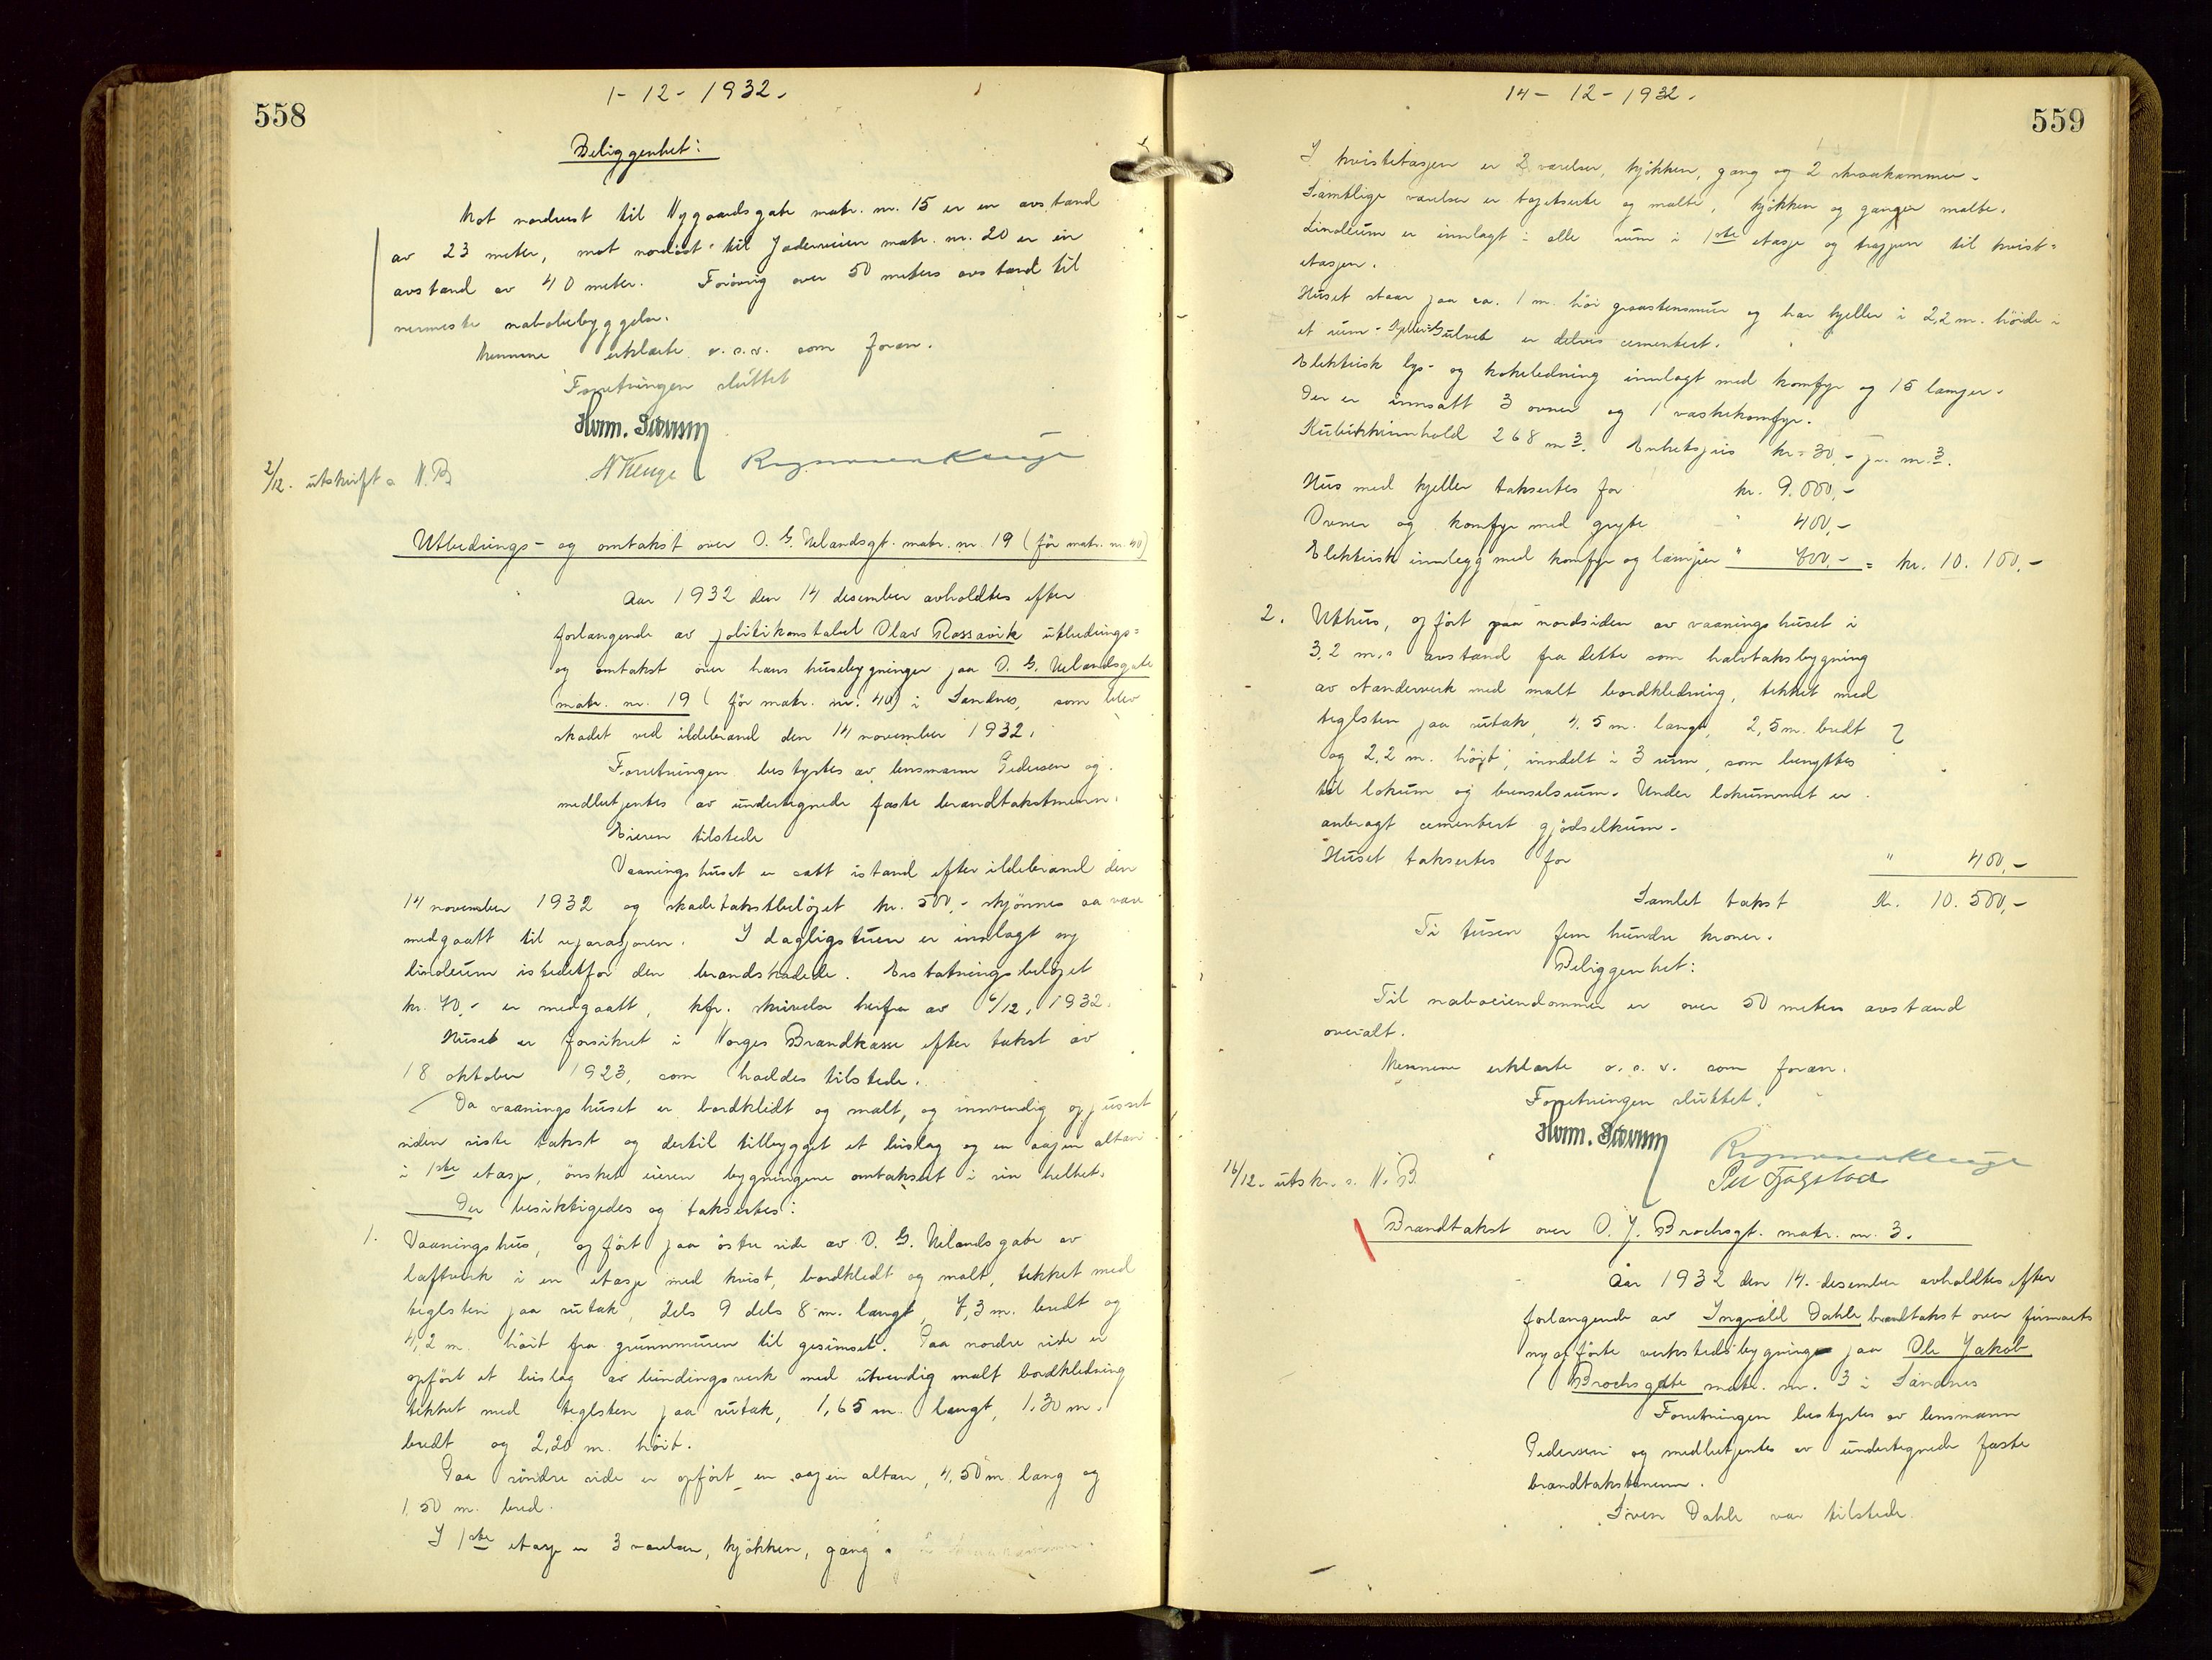 558
1-12-1932.
Beliggenhet:
Mot nordvest til Nygaardsgate matr. nr. 15 er en avstand
av 23 meter, mot nordöst til Jaderveien matr. nr. 20 er en
avstand av 40 meter. Forövrig over 50 meters avstand til
nermeste nabobebyggelse.
Mennene erklærte o.s.v. som foran.
Forretningen sluttet
2/12. utskrift s. N.B.
Utbedrings- og omtakst over O. G. Uelandsgt. matr. nr. 19 (för matr. nr. 40)
Aar 1932 den 14 desember avholdtes efter
forlangende av politikonstabel Olav Rossavik utbedrings=
og omtakst over hans husebygninger paa O. G. Uelandsgate
matr. nr. 19 (för matr. nr. 40) i Sandnes, som blev
skadet ved ildebrand den 14 november 1932.
Forretningen bestyrtes av lensmann Pedersen og
medbetjentes av undertegnede faste brandtakstmenn.
Eieren tilstede
Vaaningshuset er satt istand efter ildebrand den
14 november 1932 og skadetakstbelöpet kr. 500,- skjönnes aa være
medgaatt til reparasjonen. I dagligstuen er innlagt ny
linoleum istedetfor den brandskadede. Erstatningsbelöpet
kr. 70,- er medgaatt, kfr. skrivelse herfra av 6/12. 1932.
Huset er forsikret i Norges Brandkasse efter takst av
18 oktober 1923, som haddes tilstede.
Da vaaningshuset er bordklædt og malt, og innvendig oppusset
siden siste takst og dertil tilbygget et bislag og en aapen altan
i 1ste etasje, önsket eieren bygningene omtaksert i sin helhet.
Der besiktigedes og taksertes:
1. Vaaningshus, opfört paa östre side av O. G. Uelandsgate av
laftverk i en etasje med kvist, bordkledt og malt, tekket med
teglsten paa sutak, dels 9 dels 8 m. langt, 7,3 m. bredt og
4,2 m. höit fra grunnmuren til gesimset. Paa nordre side er
opfört et bislag av bindingsverk med utvendig malt bordkledning
tekket med teglsten paa sutak, 1,65 m. langt, 1,30 m.
bredt og 2,20 m. höit.
Paa söndre side er opfört en aapen altan, 4,50 m. lang og
1,50 m. bred.
I 1ste etasje er 3 værelser, kjökken, gang.
14-12-1932.
559
I kvistetasjen er 2 værelser, kjökken, gang og 2 skraakammer.
Samtlige værelser er tapetserte og malte, kjökken og ganger malte.
Linoleum er innlagt i alle rum i 1ste etasje og trappen til kvist=
etasjen.
Huset staar paa ca. 1 m. höi graastensmur og har kjeller i 2,2 m. höide i
et rum. Kjeller=Gulvet er delvis cementert.
Elektrisk lys- og kokeledning innlagt med komfyr og 15 lamper.
Der er innsatt 3 ovner og 1 vaskekomfyr.
Kubikkinnhold 268 m3. Enhetspris kr. 30,- pr. m3.
Hus med kjeller taksertes for kr. 9.000,-
Ovner og komfyr med gryte " 400,-
Elektrisk innlegg med komfyr og lamper " 700,- = kr. 10.100,-
2. Uthus, opfört paa nordsiden av vaaningshuset i
3,2 m.s avstand fra dette som halvtaksbygning
av stenderverk med malt bordkledning, tekket med
teglsten paa sutak, 4,5 m. langt, 2,5 m. bredt
og 2,2 m. höit, inndelt i 3 rum, som benyttes
til lokum og brenselsrum. Under lokummet er
anbragt cementert gjödselkum.
Huset taksertes for " 400,-
Samlet takst Kr. 10.500,-
Ti tusen fem hundre kroner.
Beliggenhet:
Til naboeiendommer er over 50 meters avstand
overalt.
Mennene erklærte o.s.v. som foran.
Forretningen sluttet.
16/12. utskr. s. N.B.
Brandtakst over O. J. Brochsgt. matr. nr. 3.
Aar 1932 den 14. desember avholdtes efter
forlangende av Ingvald Dahle brandtakst over firmaets
nyopförte verkstedsbygninge paa Ole Jakob
Brochsgate matr. nr. 3 i Sandnes
Forretningen bestyrtes av lensmann
Pedersen og medbetjentes av undertegnede faste
brandtakstmenn.
Sven Dahle var tilstede.